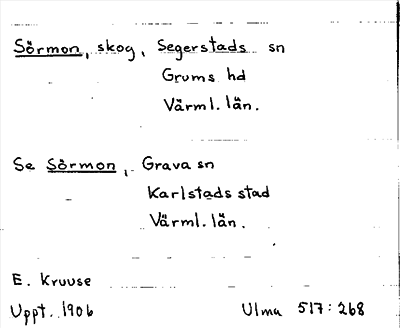 Sörmon, skog, Segerstads sn
Grums hd
Värml. län.
Se Sörmon, Grava sn
Karlstads stad
Värml. län.
E. Kruuse
Uppt. 1906 Ulma 517:268